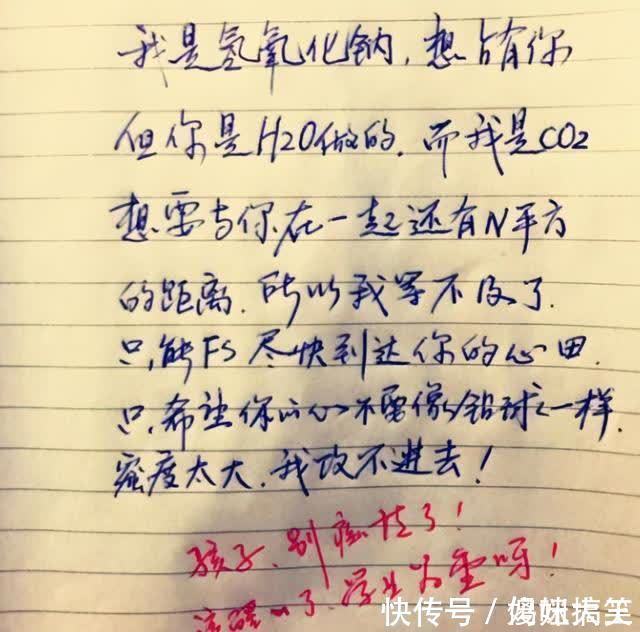 我是氢氧化钠，想占有你
但你是H2O做的．而我是CO2
想要与你在一起还有N平方
的距离．所以我等不及了．
只能FS尽快到达你的心田．
只希望你的心不要像铅球一样．
密度太大．我攻不进去！
孩子．别痴情了！
清醒一下．学业为重呀！
快传号／媳妇搞笑